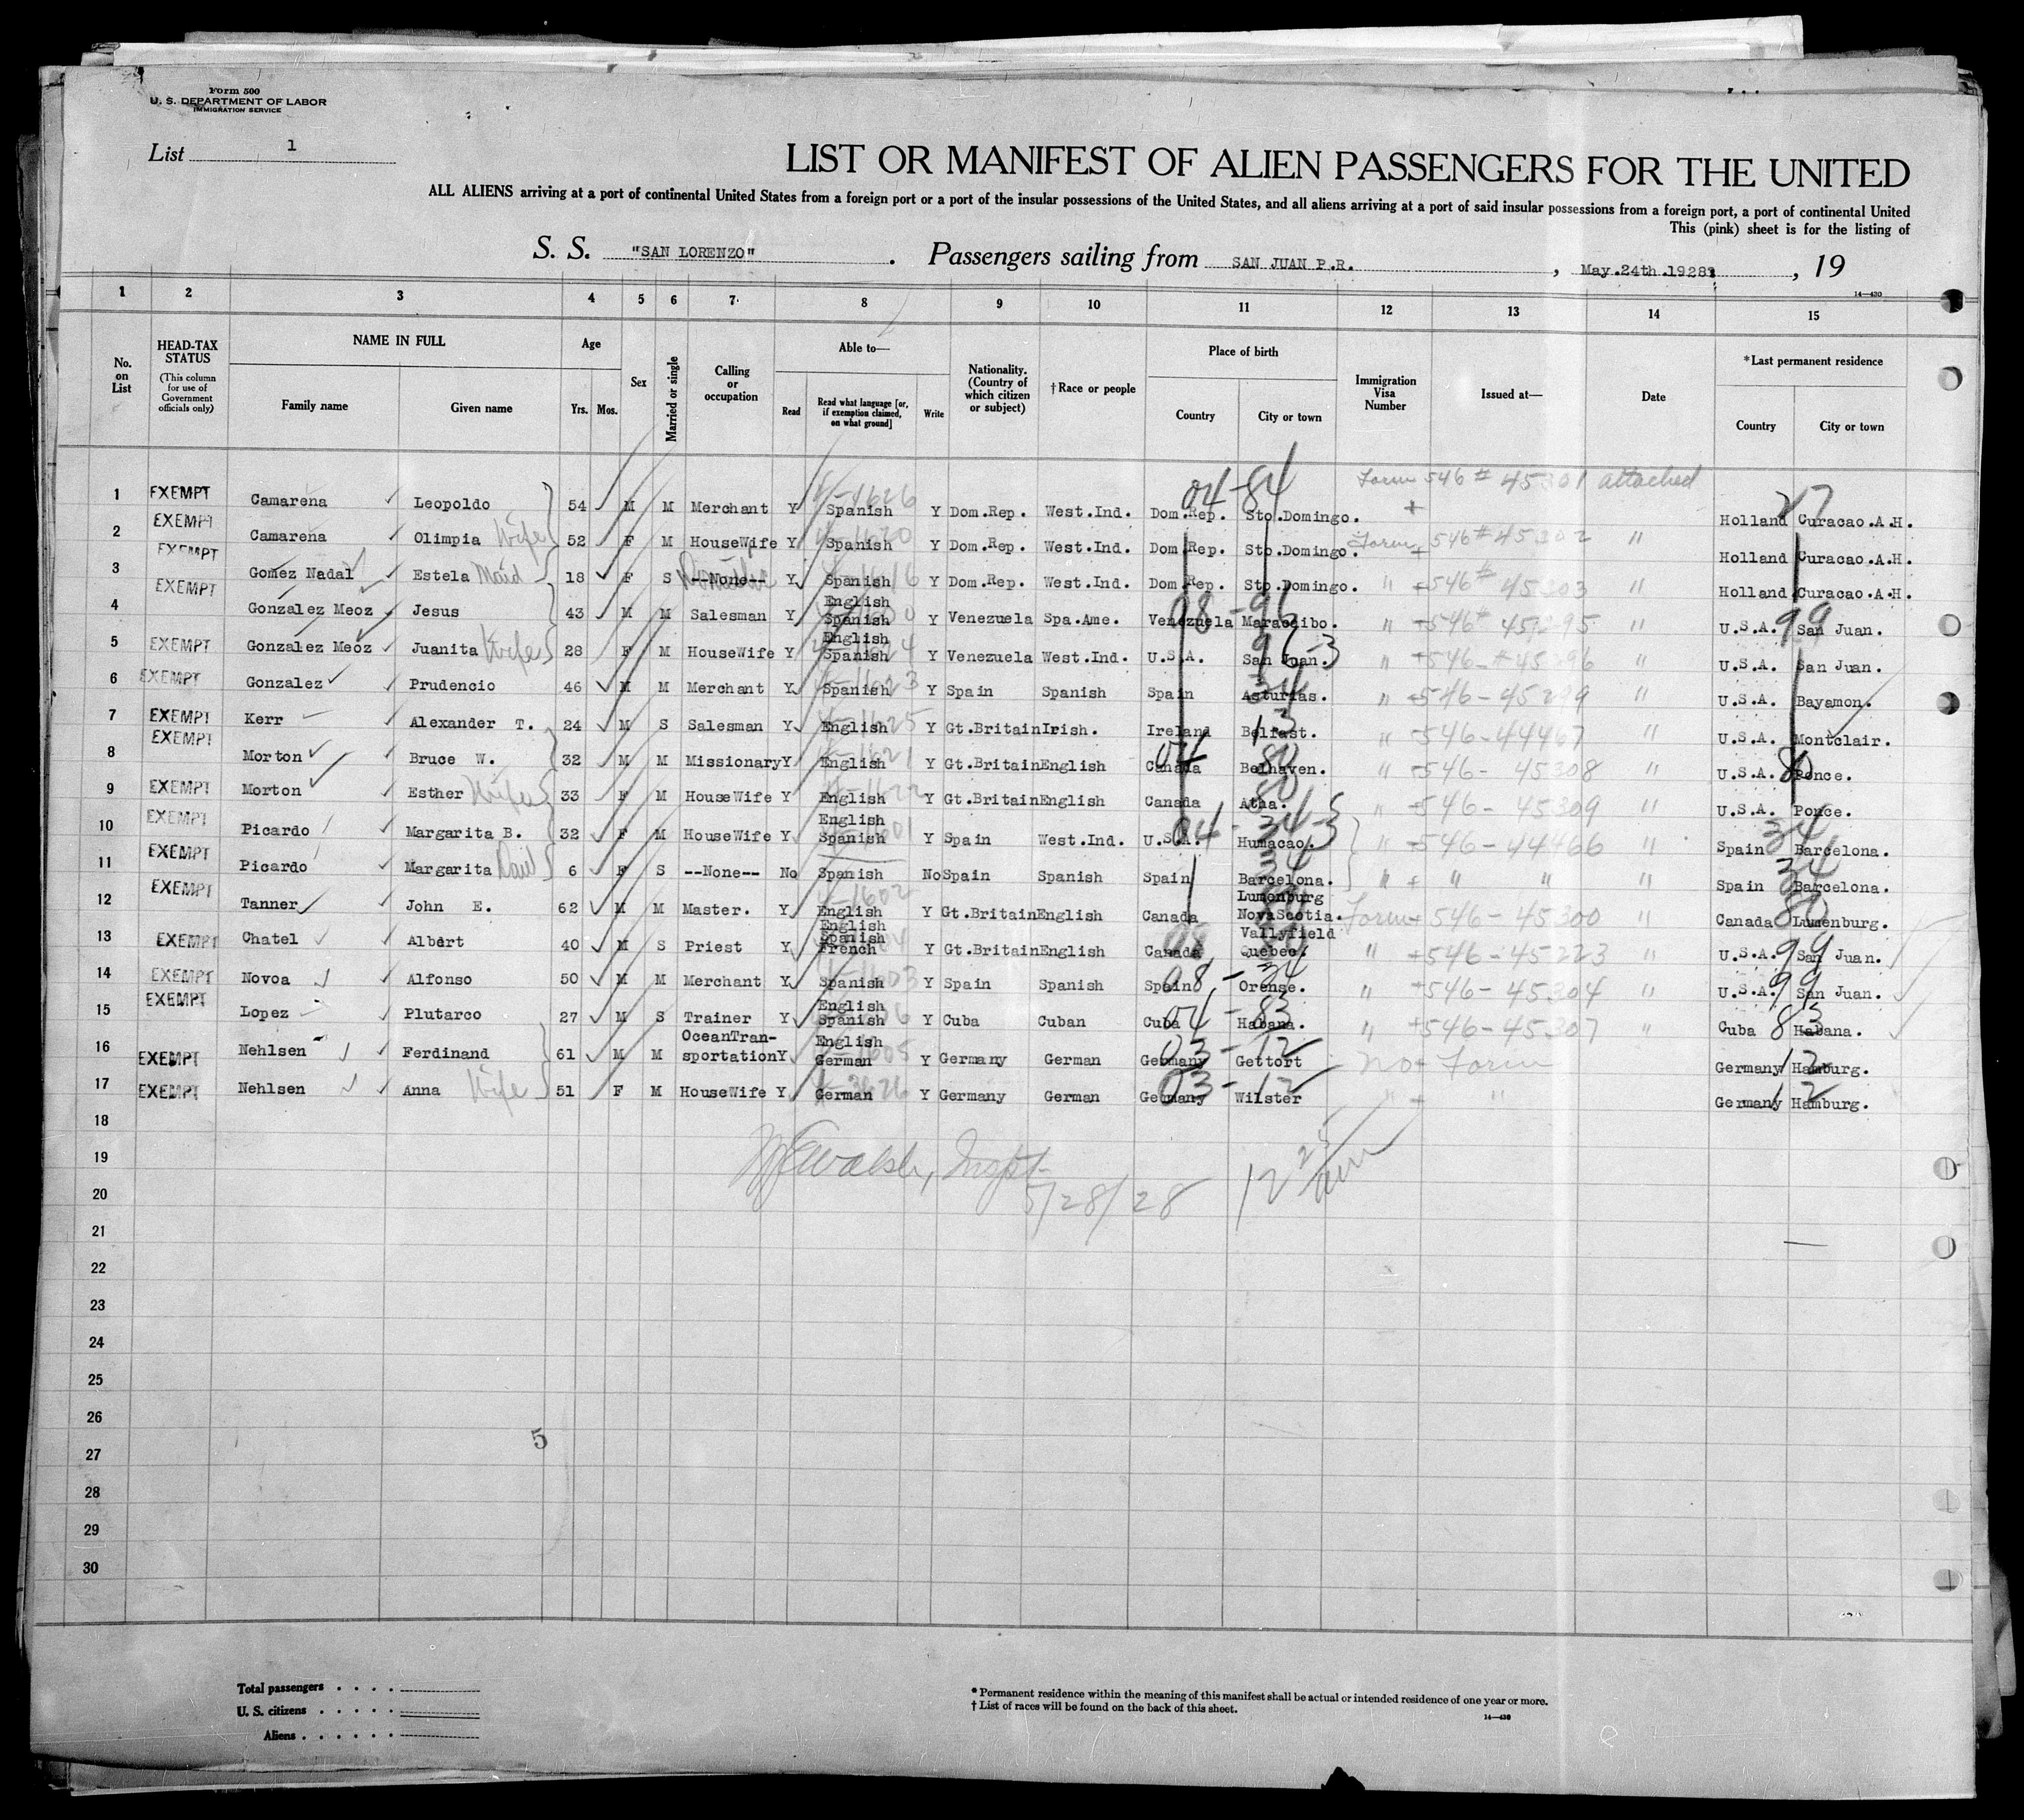 Form 500
U. S. DEPARTMENT OF LABOR
IMMIGRATION SERVICE
List 1
LIST OR MANIFEST OF ALIEN PASSENGERS FOR THE UNITED
ALL ALIENS arriving at a port of continental United States from a foreign port or a port of the insular possessions of the United States, and all aliens arriving at a port of said insular possessions from a foreign port, a port of continental United
This (pink) sheet is for the listing of
S. S. "SAN LORENZO" . Passengers sailing from SAN JUAN P.R. , May.24th.1928 , 19
14—430
1 2 3 4 5 6 7 8 9 10 11 12 13 14 15
No. on List
HEAD-TAX STATUS
(This column for use of Government officials only)
NAME IN FULL
Family name Given name
Age
Yrs. Mos.
Sex
Married or single
Calling or occupation
Able to—
Read
Read what language [or, if exemption claimed, on what ground]
Write
Nationality. (Country of which citizen or subject)
† Race or people
Place of birth
Country City or town
Immigration Visa Number
Issued at—
Date
* Last permanent residence
Country City or town
Form 546 # 45301 attached
1 EXEMPT Camarena Leopoldo 54 M M Merchant Y Spanish Y Dom.Rep. West.Ind. Dom.Rep. Sto.Domingo. 04-84 Holland Curacao.A.H. 27
2 EXEMPT Camarena Olimpia Wife 52 F M HouseWife Y Spanish Y Dom.Rep. West.Ind. Dom.Rep. Sto.Domingo. Form 546 # 45302 " Holland Curacao.A.H.
3 EXEMPT Gomez Nadal Estela Maid 18 F S --None-- Y Spanish Y Dom.Rep. West.Ind. Dom.Rep. Sto.Domingo. " 546 # 45303 " Holland Curacao.A.H.
4 EXEMPT Gonzalez Meoz Jesus 43 M M Salesman Y English Spanish Y Venezuela Spa.Ame. Venezuela Maracaibo. " 546 # 45295 " U.S.A. San Juan. 99
5 EXEMPT Gonzalez Meoz Juanita Wife 28 F M HouseWife Y English Spanish Y Venezuela West.Ind. U.S.A. San Juan. " 546-#45296 " U.S.A. San Juan.
6 EXEMPT Gonzalez Prudencio 46 M M Merchant Y Spanish Y Spain Spanish Spain Asturias. " 546-45299 " U.S.A. Bayamon.
7 EXEMPT Kerr Alexander T. 24 M S Salesman Y English Y Gt.Britain Irish. Ireland Belfast. 13 " 546-44467 " U.S.A. Montclair.
8 EXEMPT Morton Bruce W. 32 M M Missionary Y English Y Gt.Britain English Canada Belhaven. 80 " 546- 45308 " U.S.A. Ponce. 80
9 EXEMPT Morton Esther Wife 33 F M HouseWife Y English Y Gt.Britain English Canada Atha. 80 " 546- 45309 " U.S.A. Ponce.
10 EXEMPT Picardo Margarita B. 32 F M HouseWife Y English Spanish Y Spain West.Ind. U.S.A. Humacao. 04-34-3 " 546-44466 " Spain Barcelona. 34
11 EXEMPT Picardo Margarita 6 F S --None-- No Spanish No Spain Spanish Spain Barcelona. 34 " " " " Spain Barcelona. 34
12 EXEMPT Tanner John E. 62 M M Master. Y English Y Gt.Britain English Canada Lunonburg NovaScotia. Form 546-45300 " Canada Lumenburg. 80
13 EXEMPT Chatel Albert 40 M S Priest Y English Spanish French Y Gt.Britain English Canada Vallyfield Quebec. " 546-45223 " U.S.A. San Juan. 99
14 EXEMPT Novoa Alfonso 50 M M Merchant Y Spanish Y Spain Spanish Spain Orense. 08-34 " 546-45304 " U.S.A. San Juan. 99
15 EXEMPT Lopez Plutarco 27 M S Trainer Y English Spanish Y Cuba Cuban Cuba Habana. 04-83 " 546-45307 " Cuba Habana. 83
16 EXEMPT Nehlsen Ferdinand 61 M M OceanTransportation Y English German Y Germany German Germany Gettort 03-12 no Form Germany Hamburg. 12
17 EXEMPT Nehlsen Anna Wife 51 F M HouseWife Y German Y Germany German Germany Wilster 03-12 " " Germany Hamburg. 12
18
19 Walsh, Inspt.
20 5/28/28 12
21
22
23
24
25
26
5
27
28
29
30
Total passengers . . . .
U. S. citizens . . . . .
Aliens . . . . . .
* Permanent residence within the meaning of this manifest shall be actual or intended residence of one year or more.
† List of races will be found on the back of this sheet.
14—430